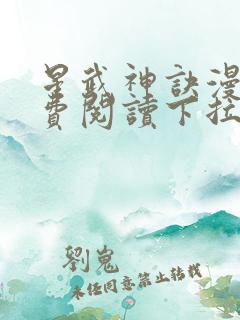 星武神訣漫
費閱讀下拉
劉嵬
未经同意禁止转载